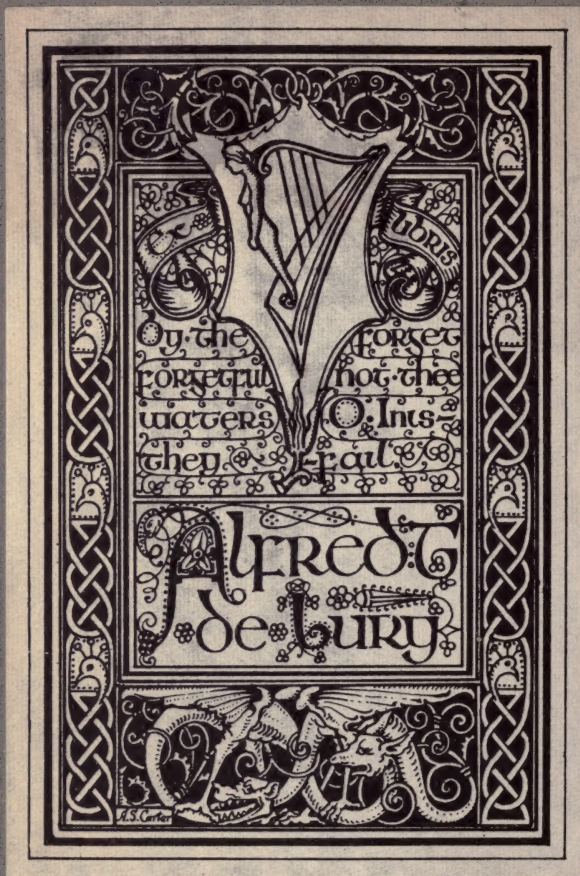 Ex libris
By·the
forgetful
waters
they
forget
not·thee
O·Inis-
-fail.
Alfred:T
de·Lury
A.S. Carter